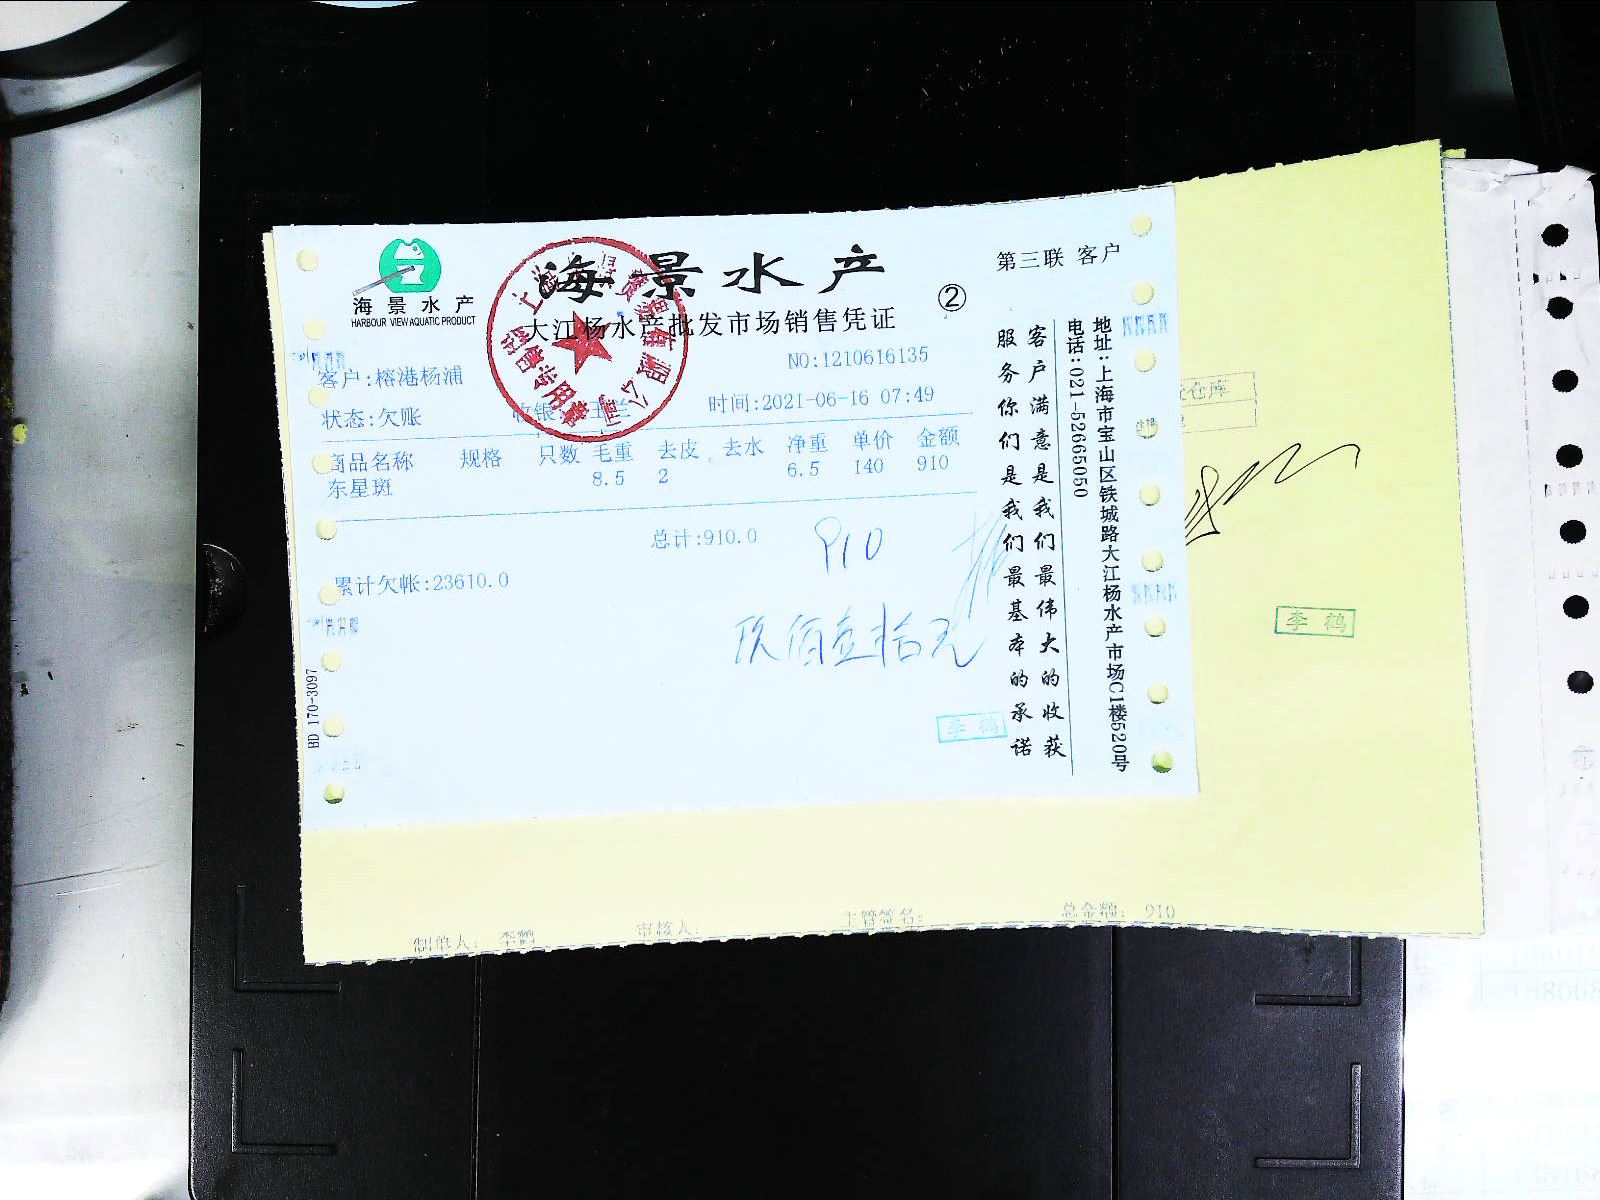 海景水产
HARBOUR VIEW AQUATIC PRODUCT
海景水产
②
第三联 客户
大江杨水产批发市场销售凭证
NO:1210616135
客户:榕港杨浦
状态:欠账
收银:
时间:2021-06-16 07:49
商品名称 规格 只数 毛重 去皮 去水 净重 单价 金额
东星斑 8.5 2 6.5 140 910
总计:910.0
910
累计欠帐:23610.0
玖佰壹拾元
李鹤
BD 170-3097
客户满意是我们最伟大的收获
服务你们是我们最基本的承诺
地址:上海市宝山区铁城路大江杨水产市场C1楼520号
电话:021-52665050
仓库
李鹤
制单人: 李鹤 审核人: 主管签名: 总金额: 910